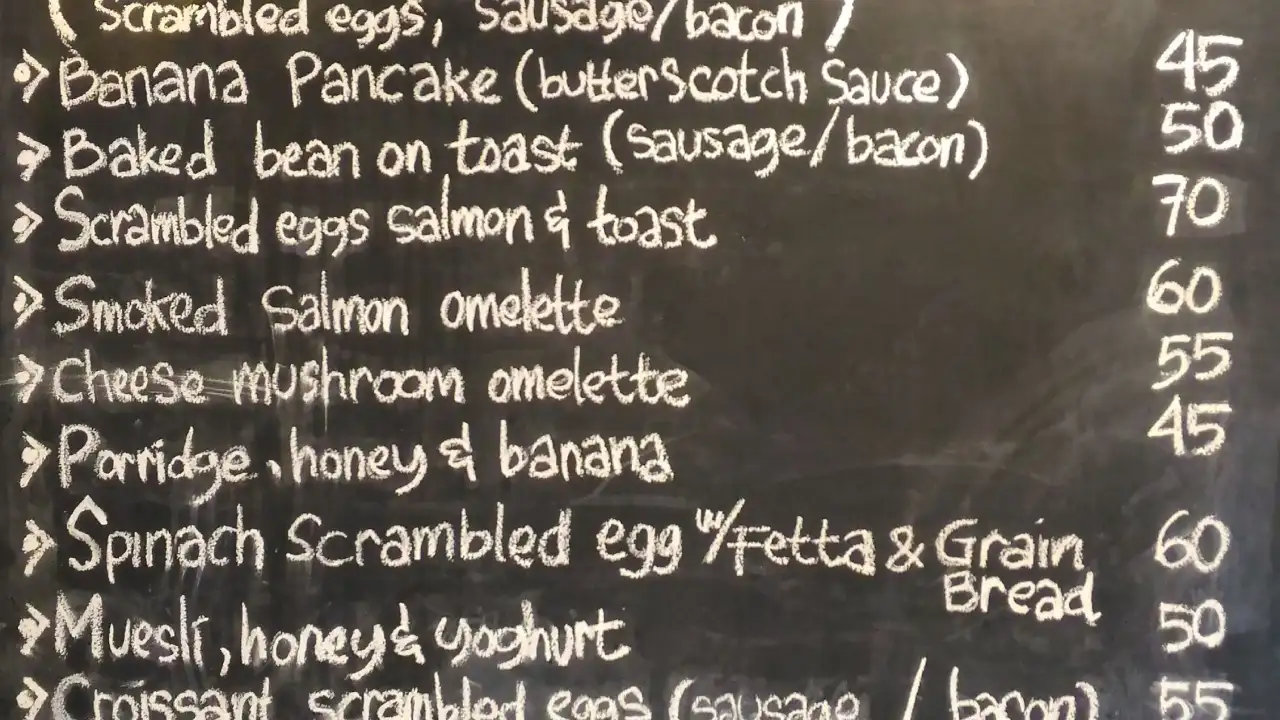 (Scrambled eggs, sausage/bacon)
Banana Pancake (butterscotch Sauce) 45
Baked bean on toast (sausage/bacon) 50
Scrambled eggs salmon & toast 70
Smoked Salmon omelette 60
Cheese mushroom omelette 55
Porridge, honey & banana 45
Spinach Scrambled egg w/Fetta & Grain 60
Bread
Muesli, honey & yoghurt 50
Croissant scrambled eggs (sausage / bacon) 55